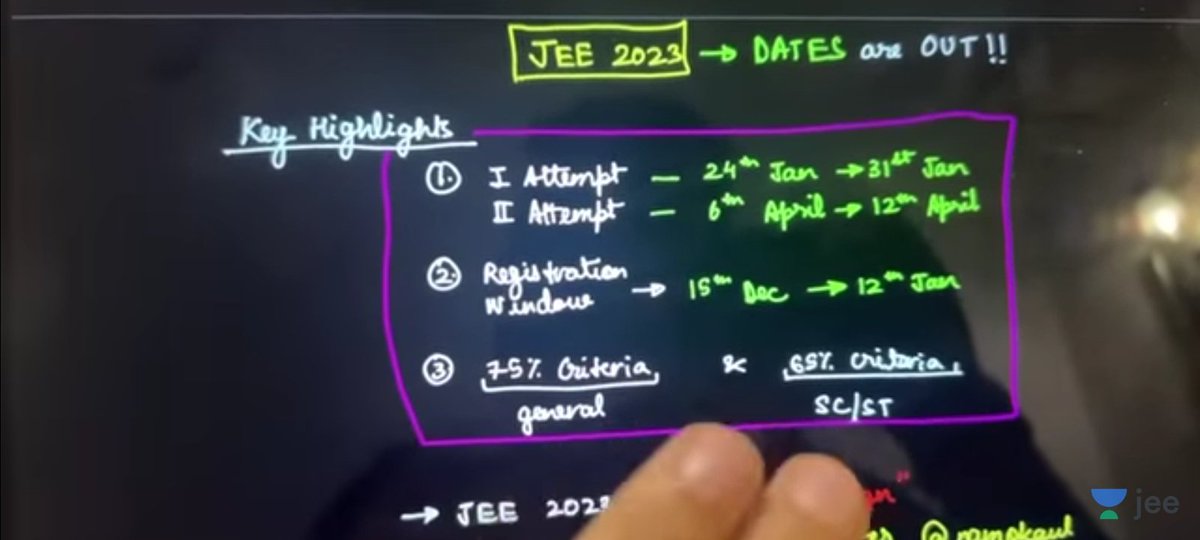 JEE 2023 → DATES are OUT!!
Key Highlights
1. I Attempt — 24th Jan → 31st Jan
II Attempt — 6th April → 12th April
2. Registration Window → 15th Dec → 12th Jan
3. 75% Criteria, & 65% criteria,
general SC/ST
→ JEE 2023
@ramokaul
jee